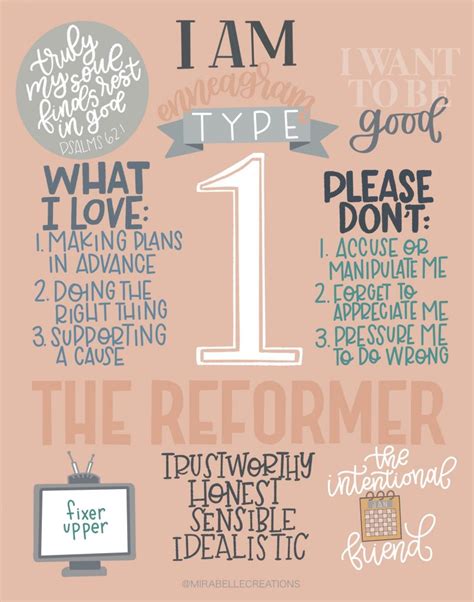 truly
my soul
finds rest
in god
PSALMS 62:1
I AM
enneagram
TYPE
1
I WANT
TO BE
good
WHAT
I LOVE:
1. MAKING PLANS
IN ADVANCE
2. DOING THE
RIGHT THING
3. SUPPORTING
A CAUSE
PLEASE
DON'T:
1. ACCUSE OR
MANIPULATE ME
2. FORGET TO
APPRECIATE ME
3. PRESSURE ME
TO DO WRONG
THE REFORMER
fixer
upper
TRUSTWORTHY
HONEST
SENSIBLE
IDEALISTIC
the
intentional
friend
@MIRABELLECREATIONS